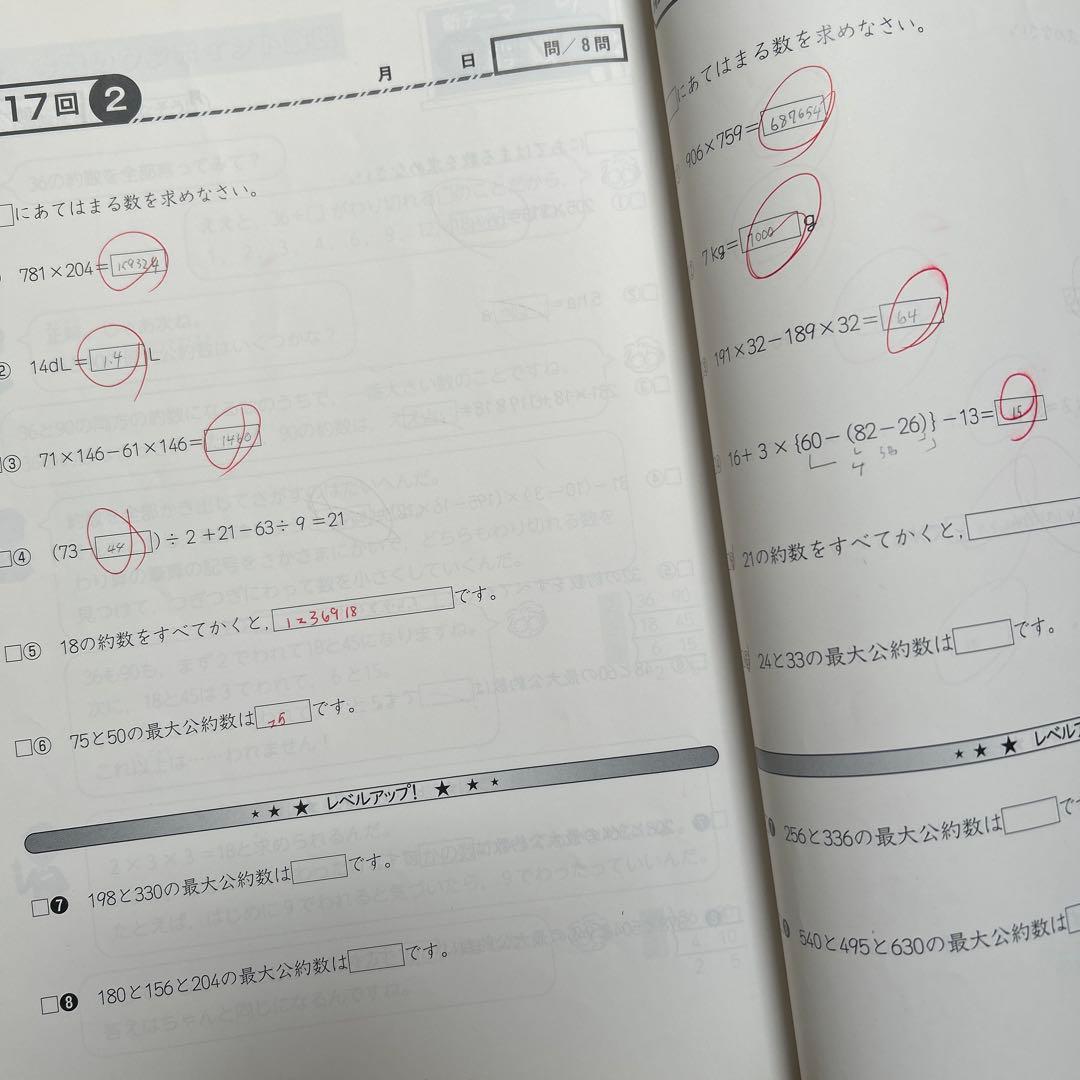 17回 2
月 日 問/8問
□にあてはまる数を求めなさい。
781×204=159324
② 14dL=1.4L
□③ 71×146-61×146=1460
□④ (73-44)÷2+21-63÷9=21
□⑤ 18の約数をすべてかくと, 1 2 3 6 9 18です。
□⑥ 75と50の最大公約数は25です。
★★★ レベルアップ! ★★★
□❼ 198と330の最大公約数は□です。
□❽ 180と156と204の最大公約数は□です。
□にあてはまる数を求めなさい。
906×759=687654
7kg=7000g
191×32-189×32=64
16+3×{60-(82-26)}-13=15
4 56
21の約数をすべてかくと,
24と33の最大公約数は□です。
★★★ レベルア
256と336の最大公約数は□で
540と495と630の最大公約数は